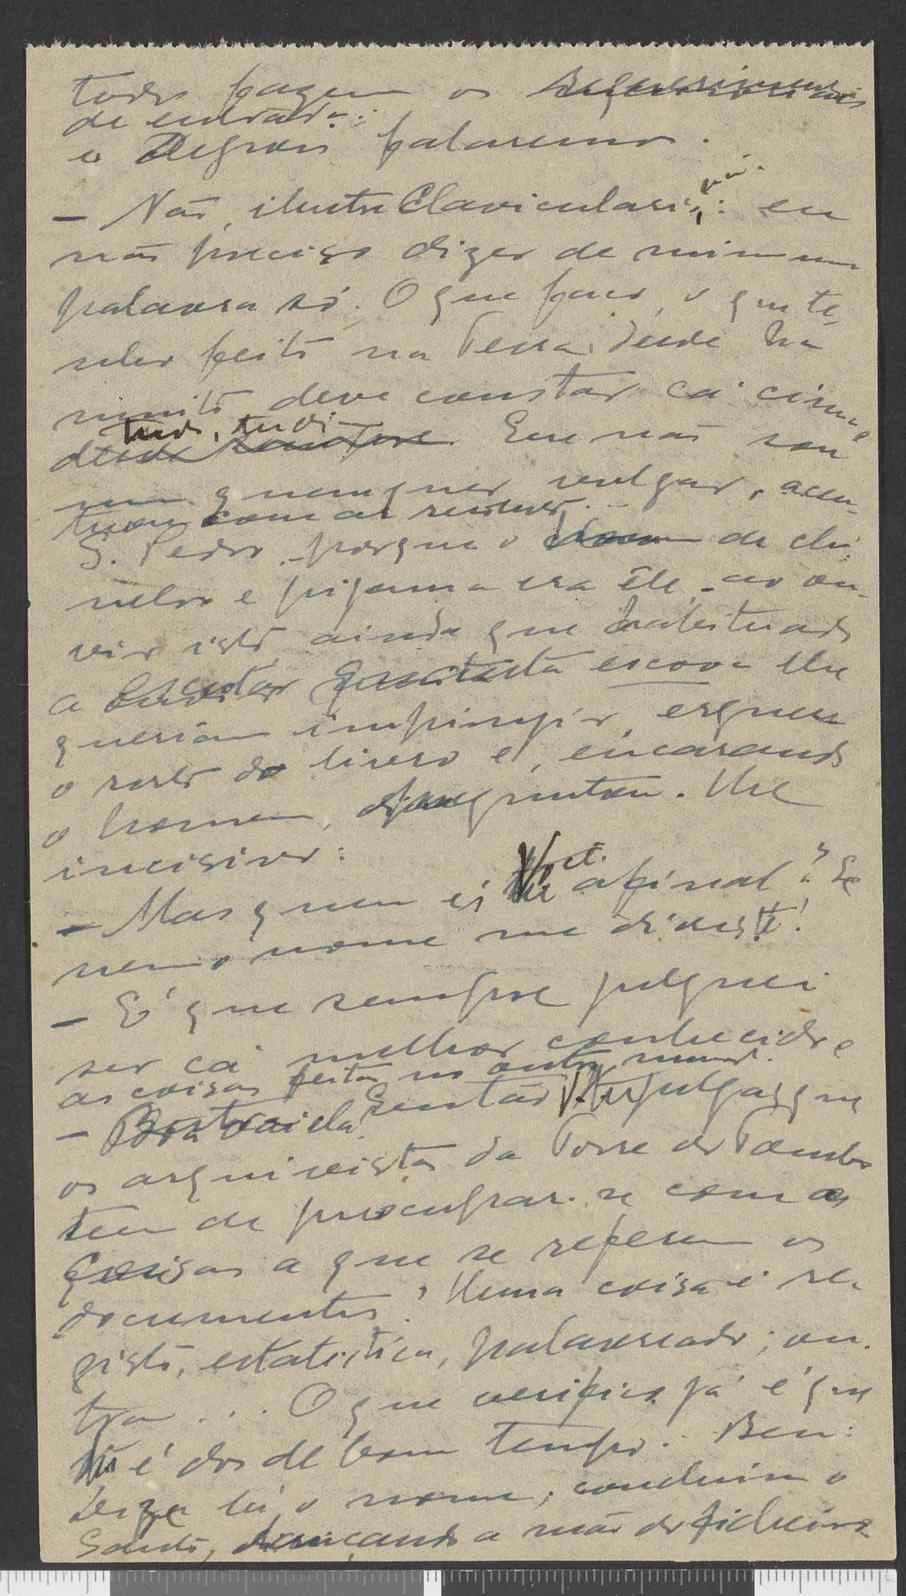 todos fazem os requerimentos
de entrada:
e Depois falaremos.
— Não, ilustre Claviculario: eu
não preciso dizer de mim uma
palavra só. O que faço, o que te-
nho feito na Terra, desde ha
muito deve constar cá cima
tudo, tudo.
Eu não sou
um quemquer vulgar, acen-
tuou com ar
S. Pedro, porque o de chi-
nelos e pijama era êle, ao ou-
vir isto ainda que habituado
a escutar escova lhe
queriam impingir, ergueu
o rosto do livro e, encarando
o homem, preguntou-lhe
incisivo:
— Mas quem és afinal? Se
nem o nome me disseste!
— É que sempre julguei
ser cá melhor conhecido e
as coisas feitas no outro mundo.
— Boa vai ela! Então julgas que
os arquivistas da Torre do Tombo
tem de preocupar-se com as
coisas a que se referem os
documentos? Uma coisa é re-
gisto, estatistica, palavreado; ou-
tra... O que verifico já é que
tu é dos de bom tempo. Bem:
Diga lá o nome, concluiu o
Santo, lançando a mão do ficheiro